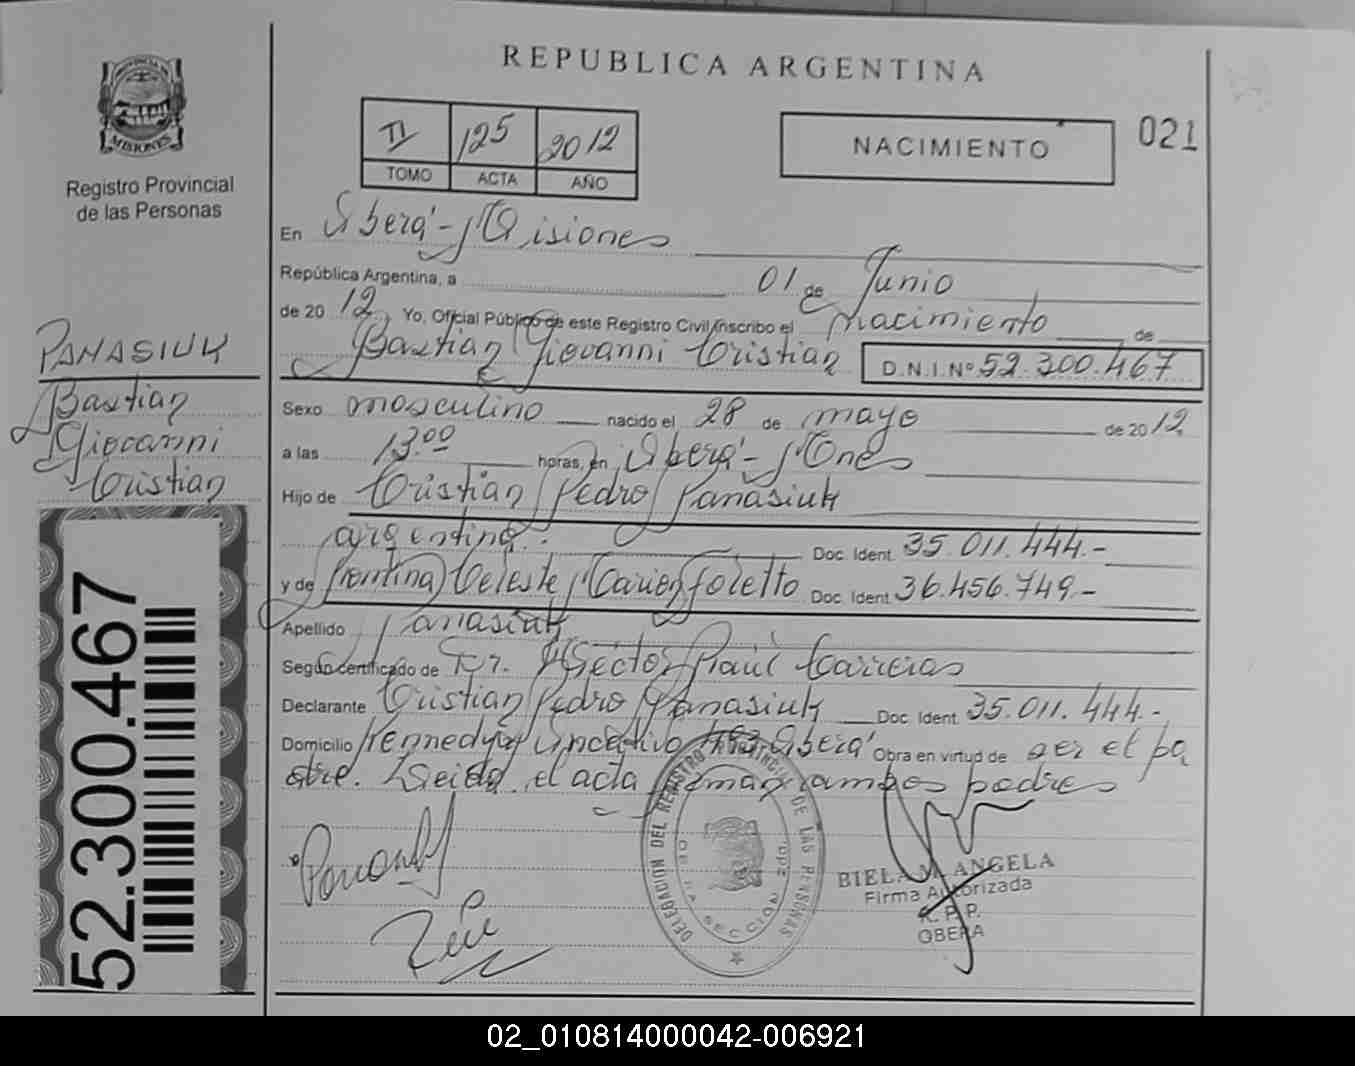 REPUBLICA ARGENTINA
PROVINCIA DE
MISIONES
Registro Provincial
de las Personas
II 125 2012
TOMO ACTA AÑO
NACIMIENTO
021
En Oberá - Misiones
República Argentina, a 01 de Junio
de 2012, Yo, Oficial Público de este Registro Civil inscribo el nacimiento de
Bastian Giovanni Cristian D.N.I. Nº 52.300.467
PANASIUK
Bastian
Giovanni
Cristian
Sexo masculino nacido el 28 de mayo de 2012
a las 13.00 horas, en Oberá - Mnes
Hijo de Cristian Pedro Panasiuk
argentino. Doc. Ident. 35.011.444.-
y de Celeste Doc. Ident. 36.456.749.-
Apellido Panasiuk
Según certificado de Dr. Hector Raúl Carreras
Declarante Cristian Pedro Panasiuk Doc. Ident. 35.011.444.-
Domicilio Kennedy Oberá Obra en virtud de ser el pa
dre. Leida el acta firman ambos padres
52.300.467
DELEGACION DEL REGISTRO PROVINCIAL DE LAS PERSONAS
OBERA SECCION 2da.
BIELA M. ANGELA
Firma Autorizada
R. P. P.
OBERA
02_010814000042-006921